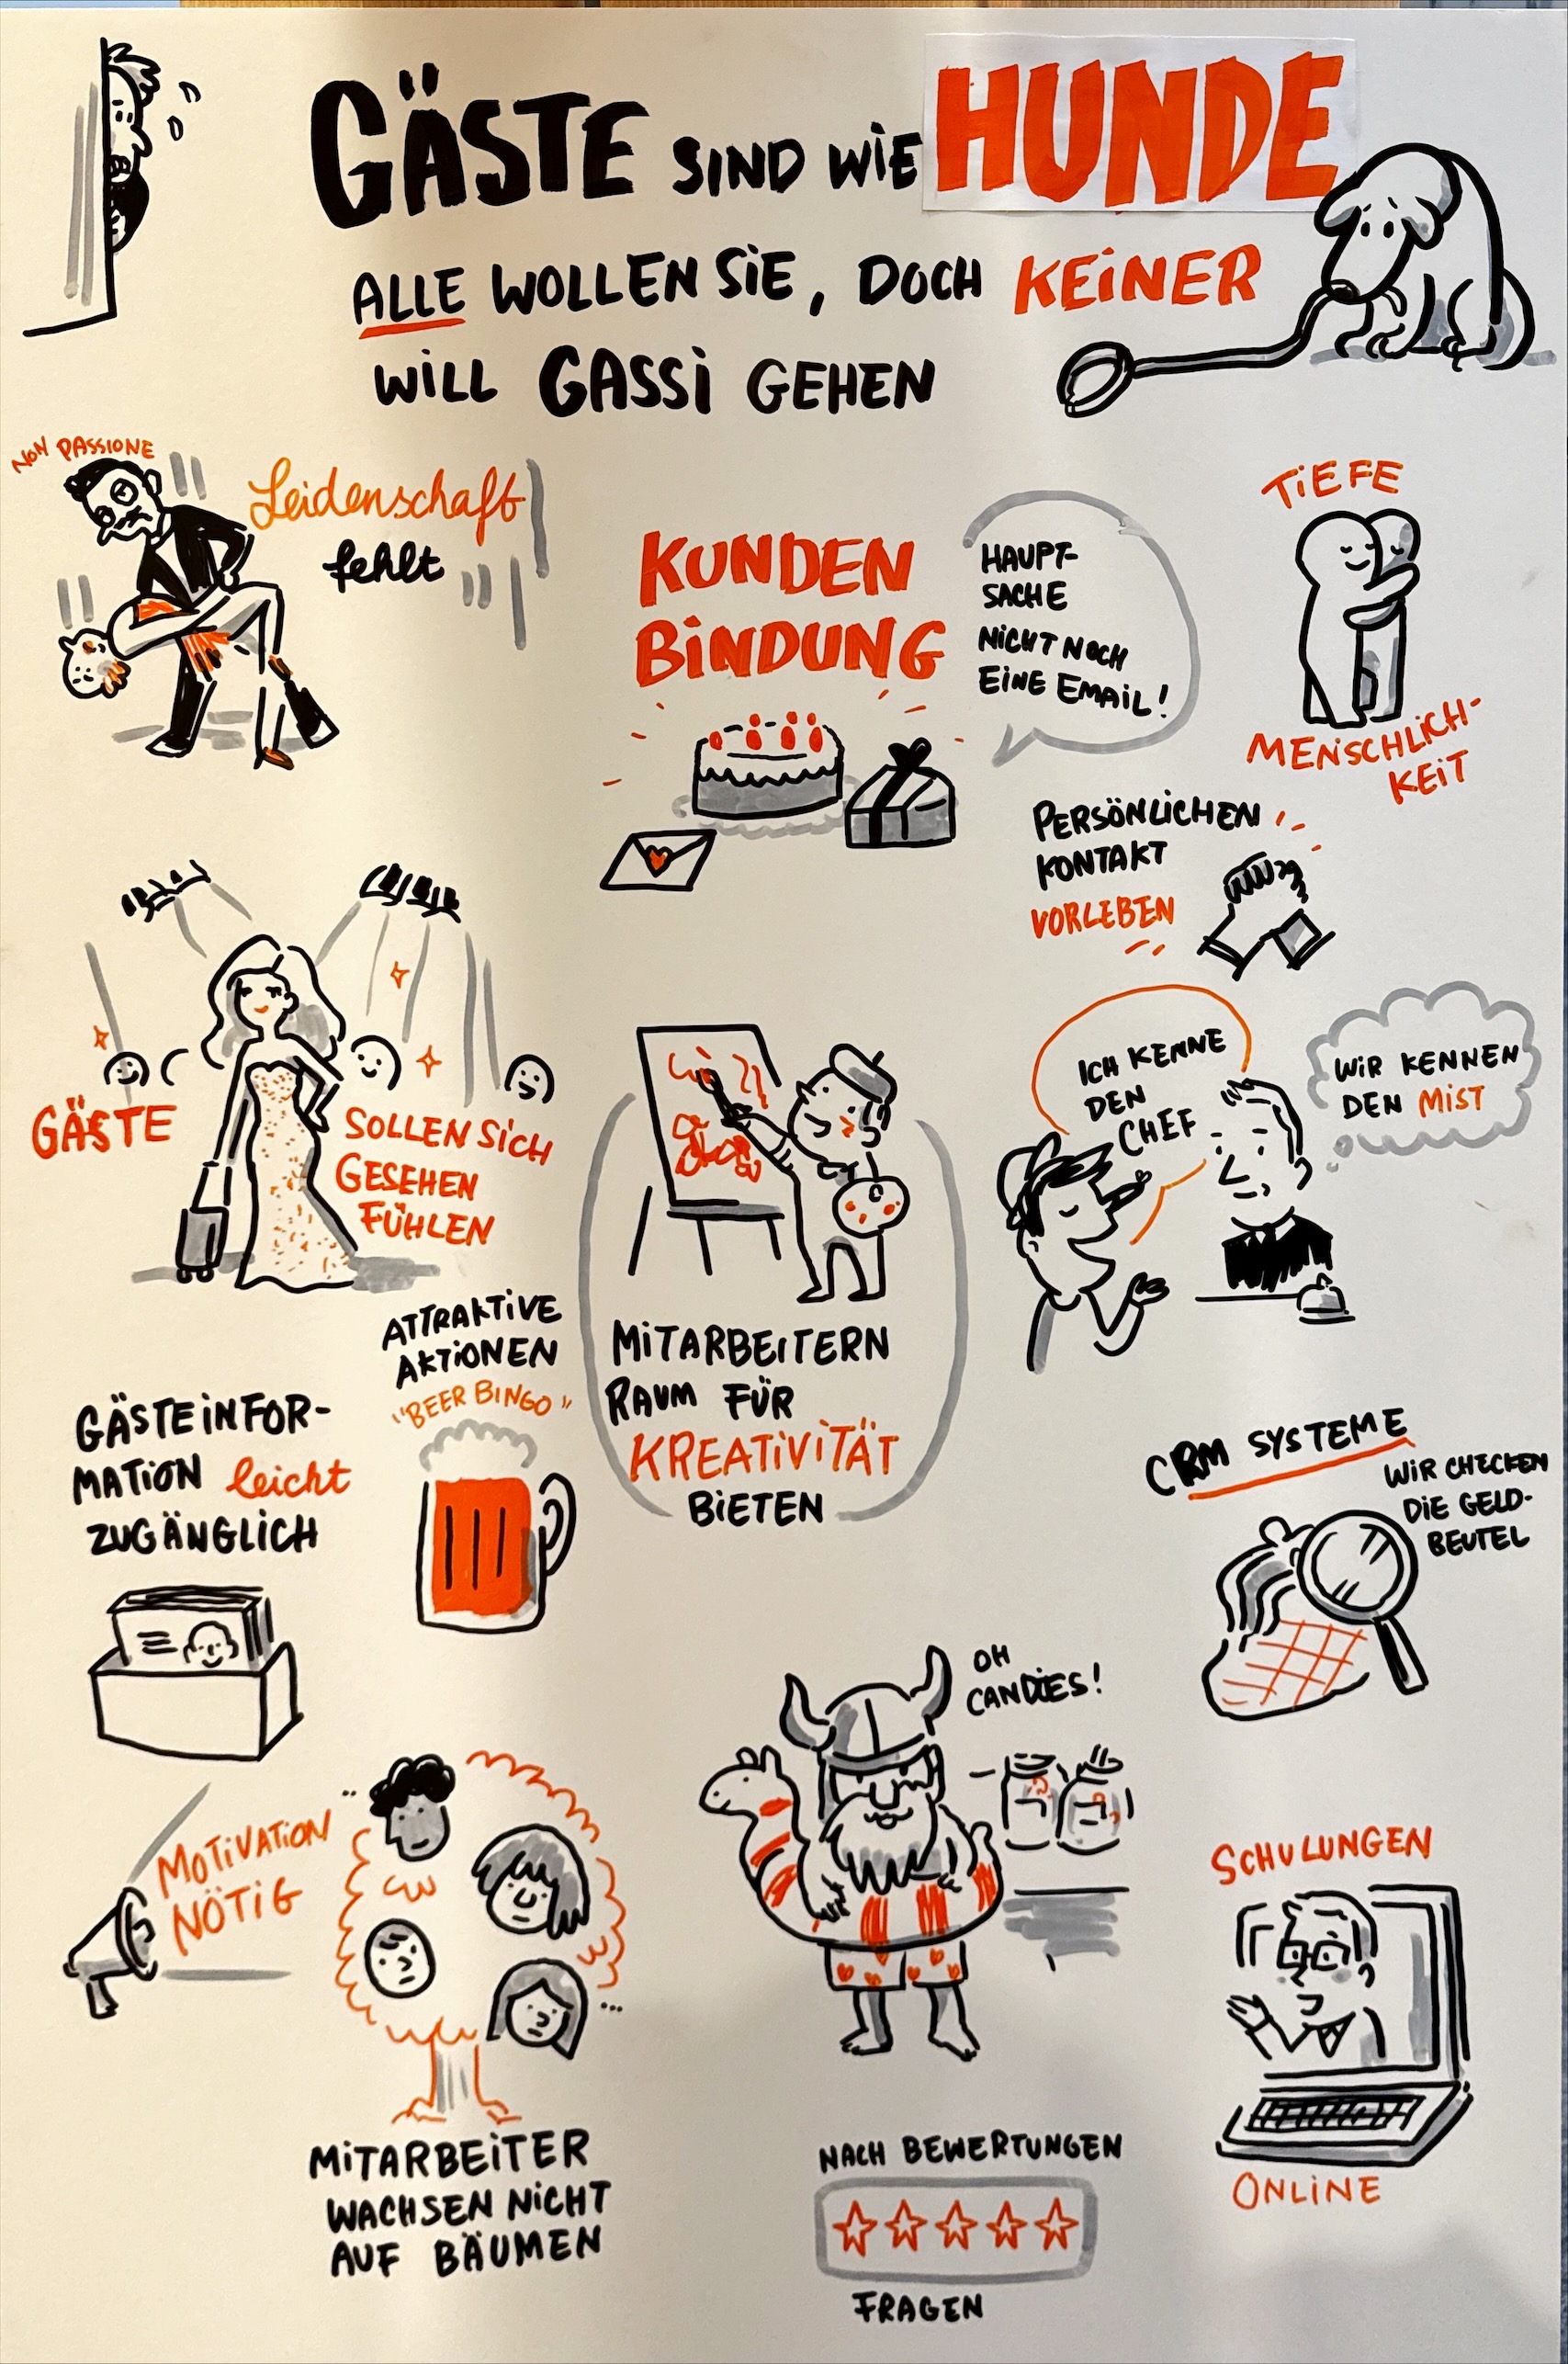 GÄSTE SIND WIE HUNDE
ALLE WOLLEN SIE, DOCH KEINER
WILL GASSI GEHEN
NON PASSIONE
Leidenschaft
fehlt
KUNDEN
BINDUNG
HAUPT-
SACHE
NICHT NOCH
EINE EMAIL!
TIEFE
MENSCHLICH-
KEIT
PERSÖNLICHEN
KONTAKT
VORLEBEN
GÄSTE
SOLLEN SICH
GESEHEN
FÜHLEN
ICH KENNE
DEN
CHEF
WIR KENNEN
DEN MIST
MITARBEITERN
RAUM FÜR
KREATIVITÄT
BIETEN
ATTRAKTIVE
AKTIONEN
"BEER BINGO"
GÄSTEINFOR-
MATION leicht
ZUGÄNGLICH
CRM SYSTEME
WIR CHECKEN
DIE GELD-
BEUTEL
OH
CANDIES!
MOTIVATION
NÖTIG
MITARBEITER
WACHSEN NICHT
AUF BÄUMEN
NACH BEWERTUNGEN
FRAGEN
SCHULUNGEN
ONLINE